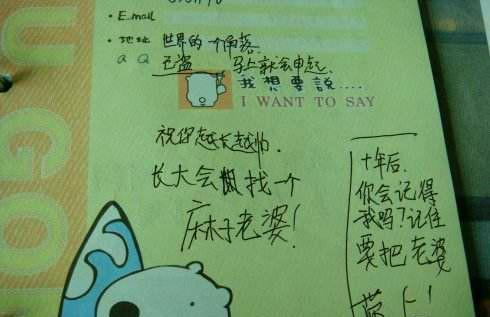 • E.mail
• 地址 世界的一个角落.
Q Q 已盗 马上就会申起.
我想要說....
I WANT TO SAY
祝你越长越帅.
长大会找一个
麻子老婆!
十年后.
你会记得
我吗?记住
要把老婆
UGO